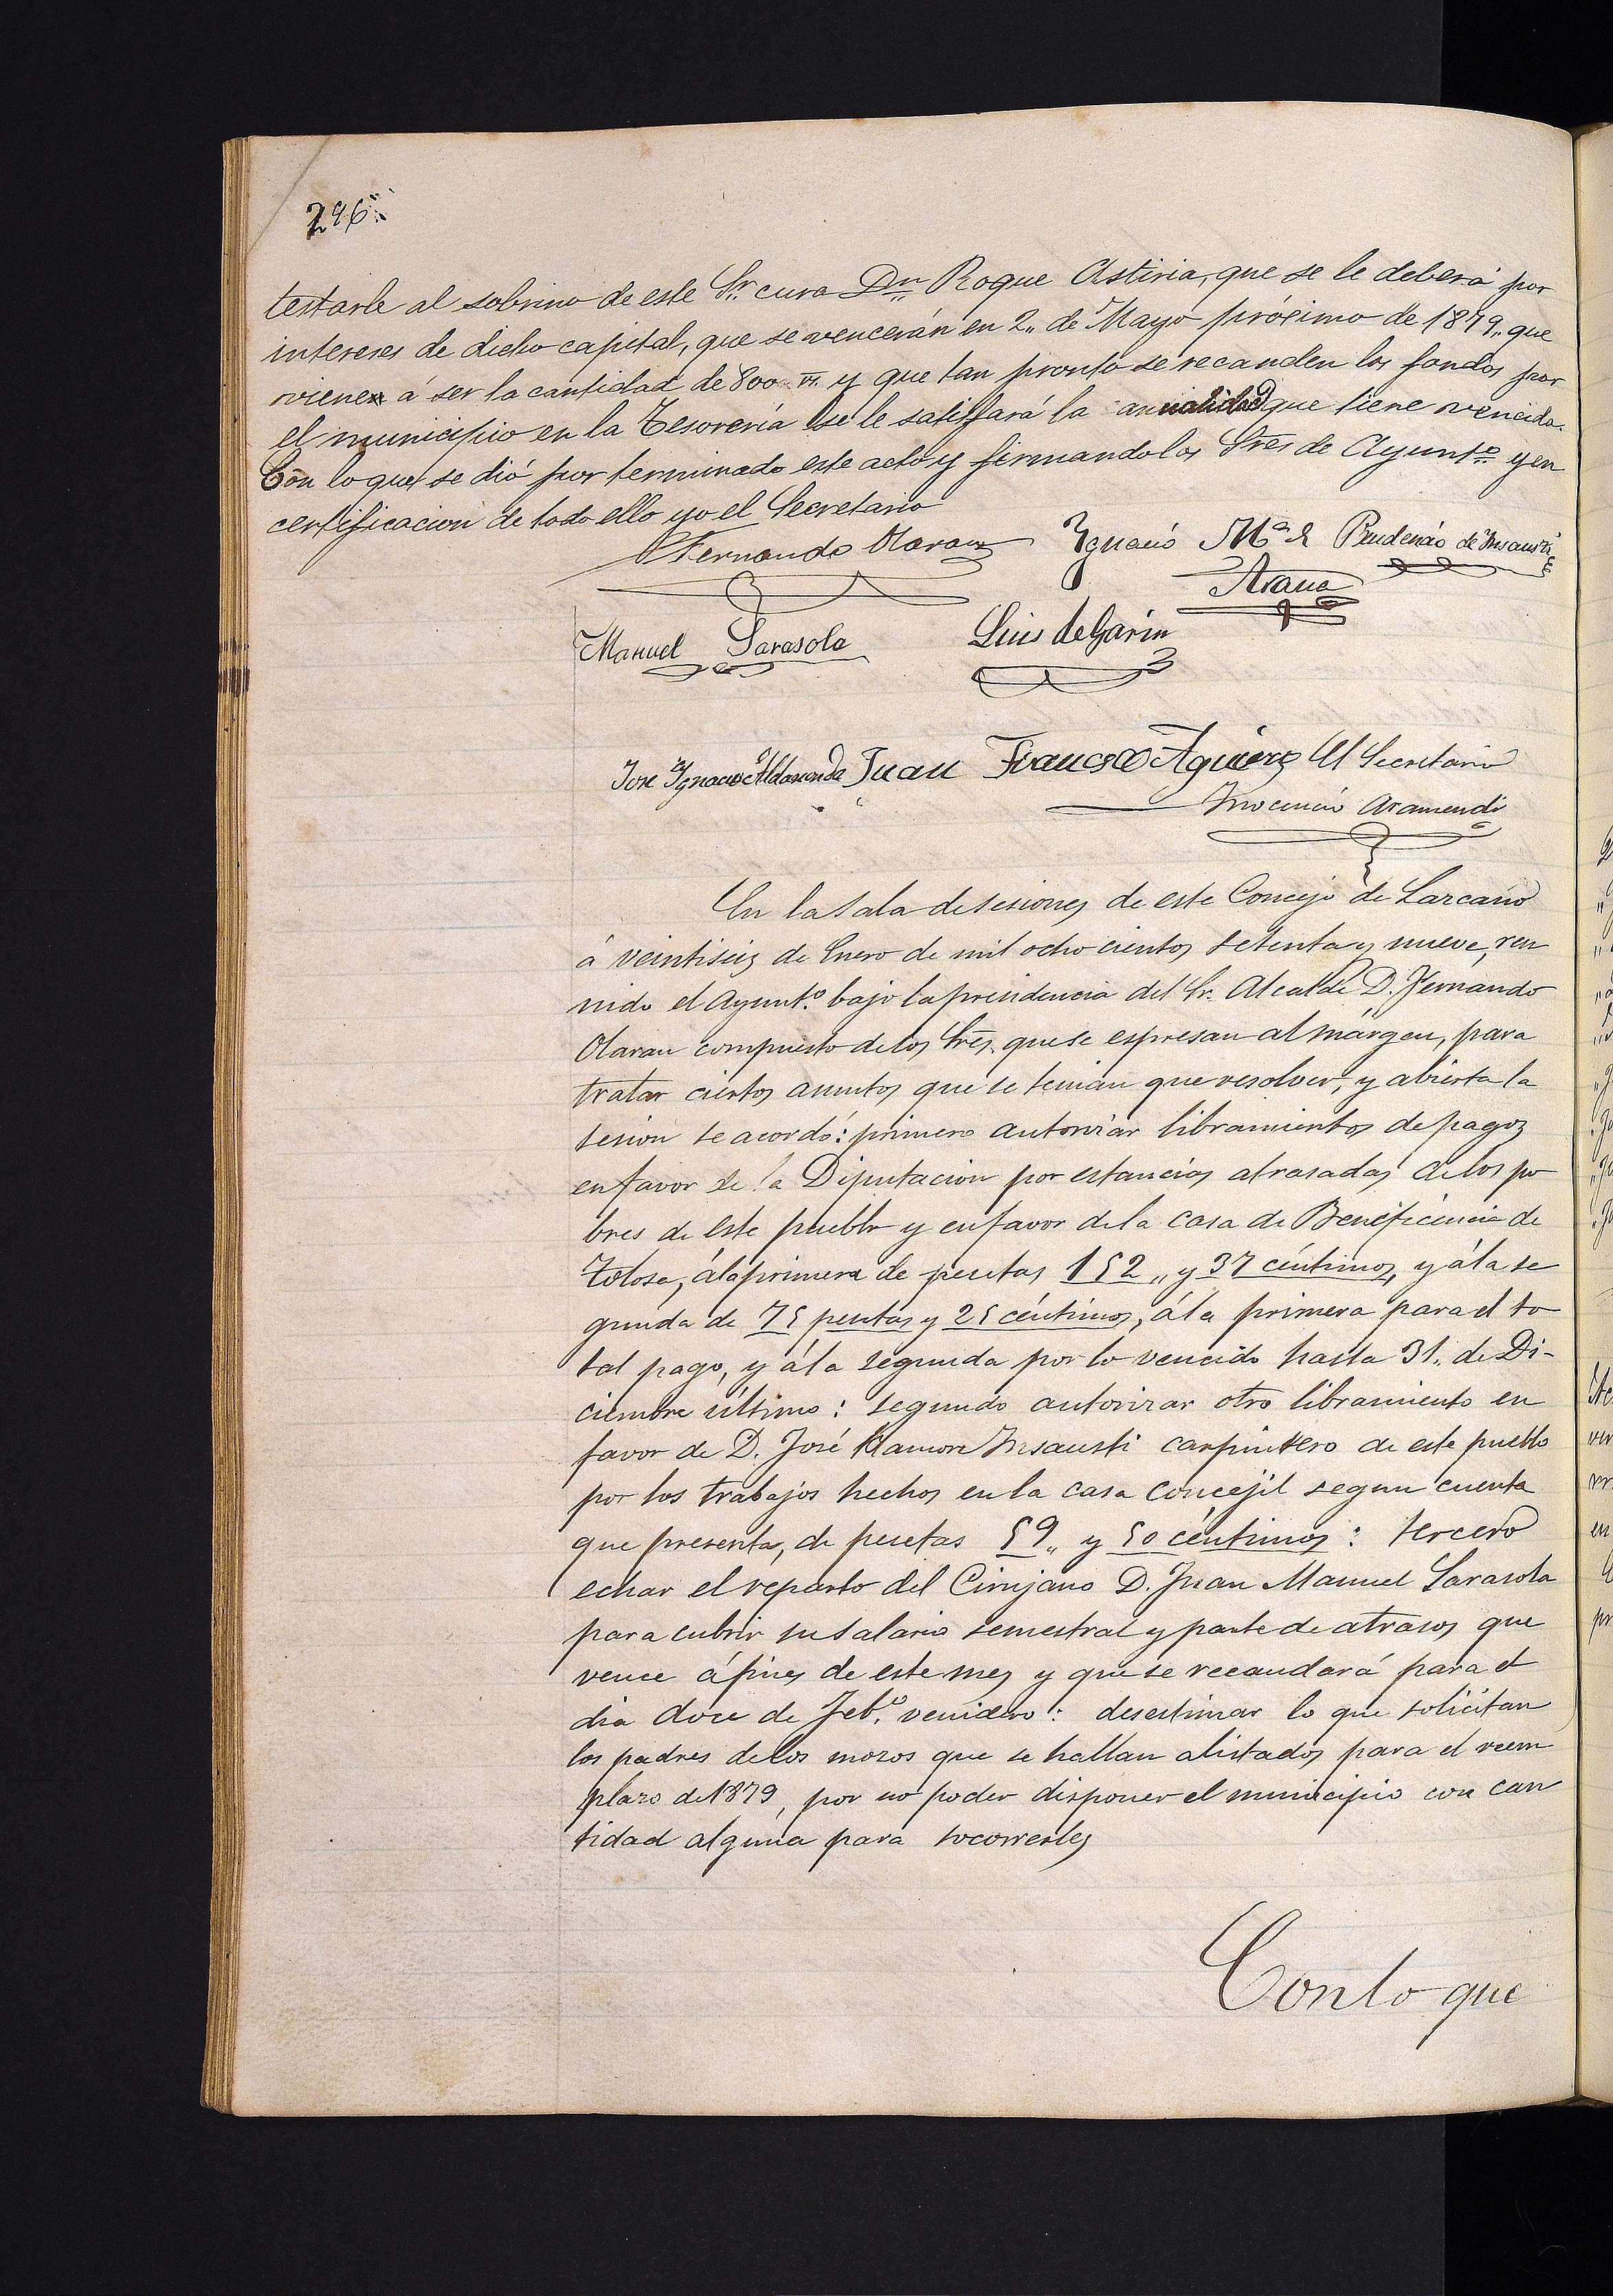 296
testarle al sobrino de este Sr. cura Dn Roque Astiria, que se le deberá por
intereses de dicho capital, que se vencerán en 2,, de Mayo próximo de 1879,, que
vienen á ser la cantidad de 800 rs. y que tan pronto se recauden los fondos por
el municipio en la Tesorería se le satisfará la anualidad que tiene vencida.
Con lo que se dió por terminado este acto y firmando los Sres de Ayunto. y en
certificacion de todo ello yo el Secretario
Fernando Olaran Ygnacio Ma. de Prudencio de Insausti
Arana
Manuel Sarasola Luis de Garin
Jose Ygnacio Aldasoro Juan Francisco Aguirre El Secretario
Inocencio Aramendi
En la Sala de sesiones de este Concejo de Lazcano
á veintiseis de Enero de mil ocho cientos setenta y nueve, reu
nido el Ayunto. bajo la presidencia del Sr. Alcalde D. Fernando
Olaran compuesto de los Sres. que se espresan al márgen, para
tratar ciertos asuntos que se tenian que resolver, y abierta la
sesion se acordó: primero autorizar libramientos de pagos
en favor de la Diputacion por estancias atrasadas de los po
bres de este pueblo y en favor de la casa de Beneficencia de
Tolosa, á la primera de pesetas 152,, y 37 céntimos, y á la se
gunda de 75 pesetas y 25 céntimos, á la primera para el to
tal pago, y á la segunda por lo vencido hasta 31,, de Di-
ciembre último: segundo autorizar otro libramiento en
favor de D. José Ramon Insausti carpintero de este pueblo
por los trabajos hechos en la casa Concejil segun cuenta
que presenta, de pesetas 59,, y 50 céntimos: tercero
echar el reparto del Cirujano D. Juan Manuel Sarasola
para cubrir su salario semestral y parte de atrasos que
vence á fines de este mes y que se recaudará para el
dia doce de Febo. venidero: desestimar lo que solicitan
los padres de los mozos que se hallan alistados para el reem
plazo de 1879, por no poder disponer el municipio con can
tidad alguna para socorrerles
Con lo que